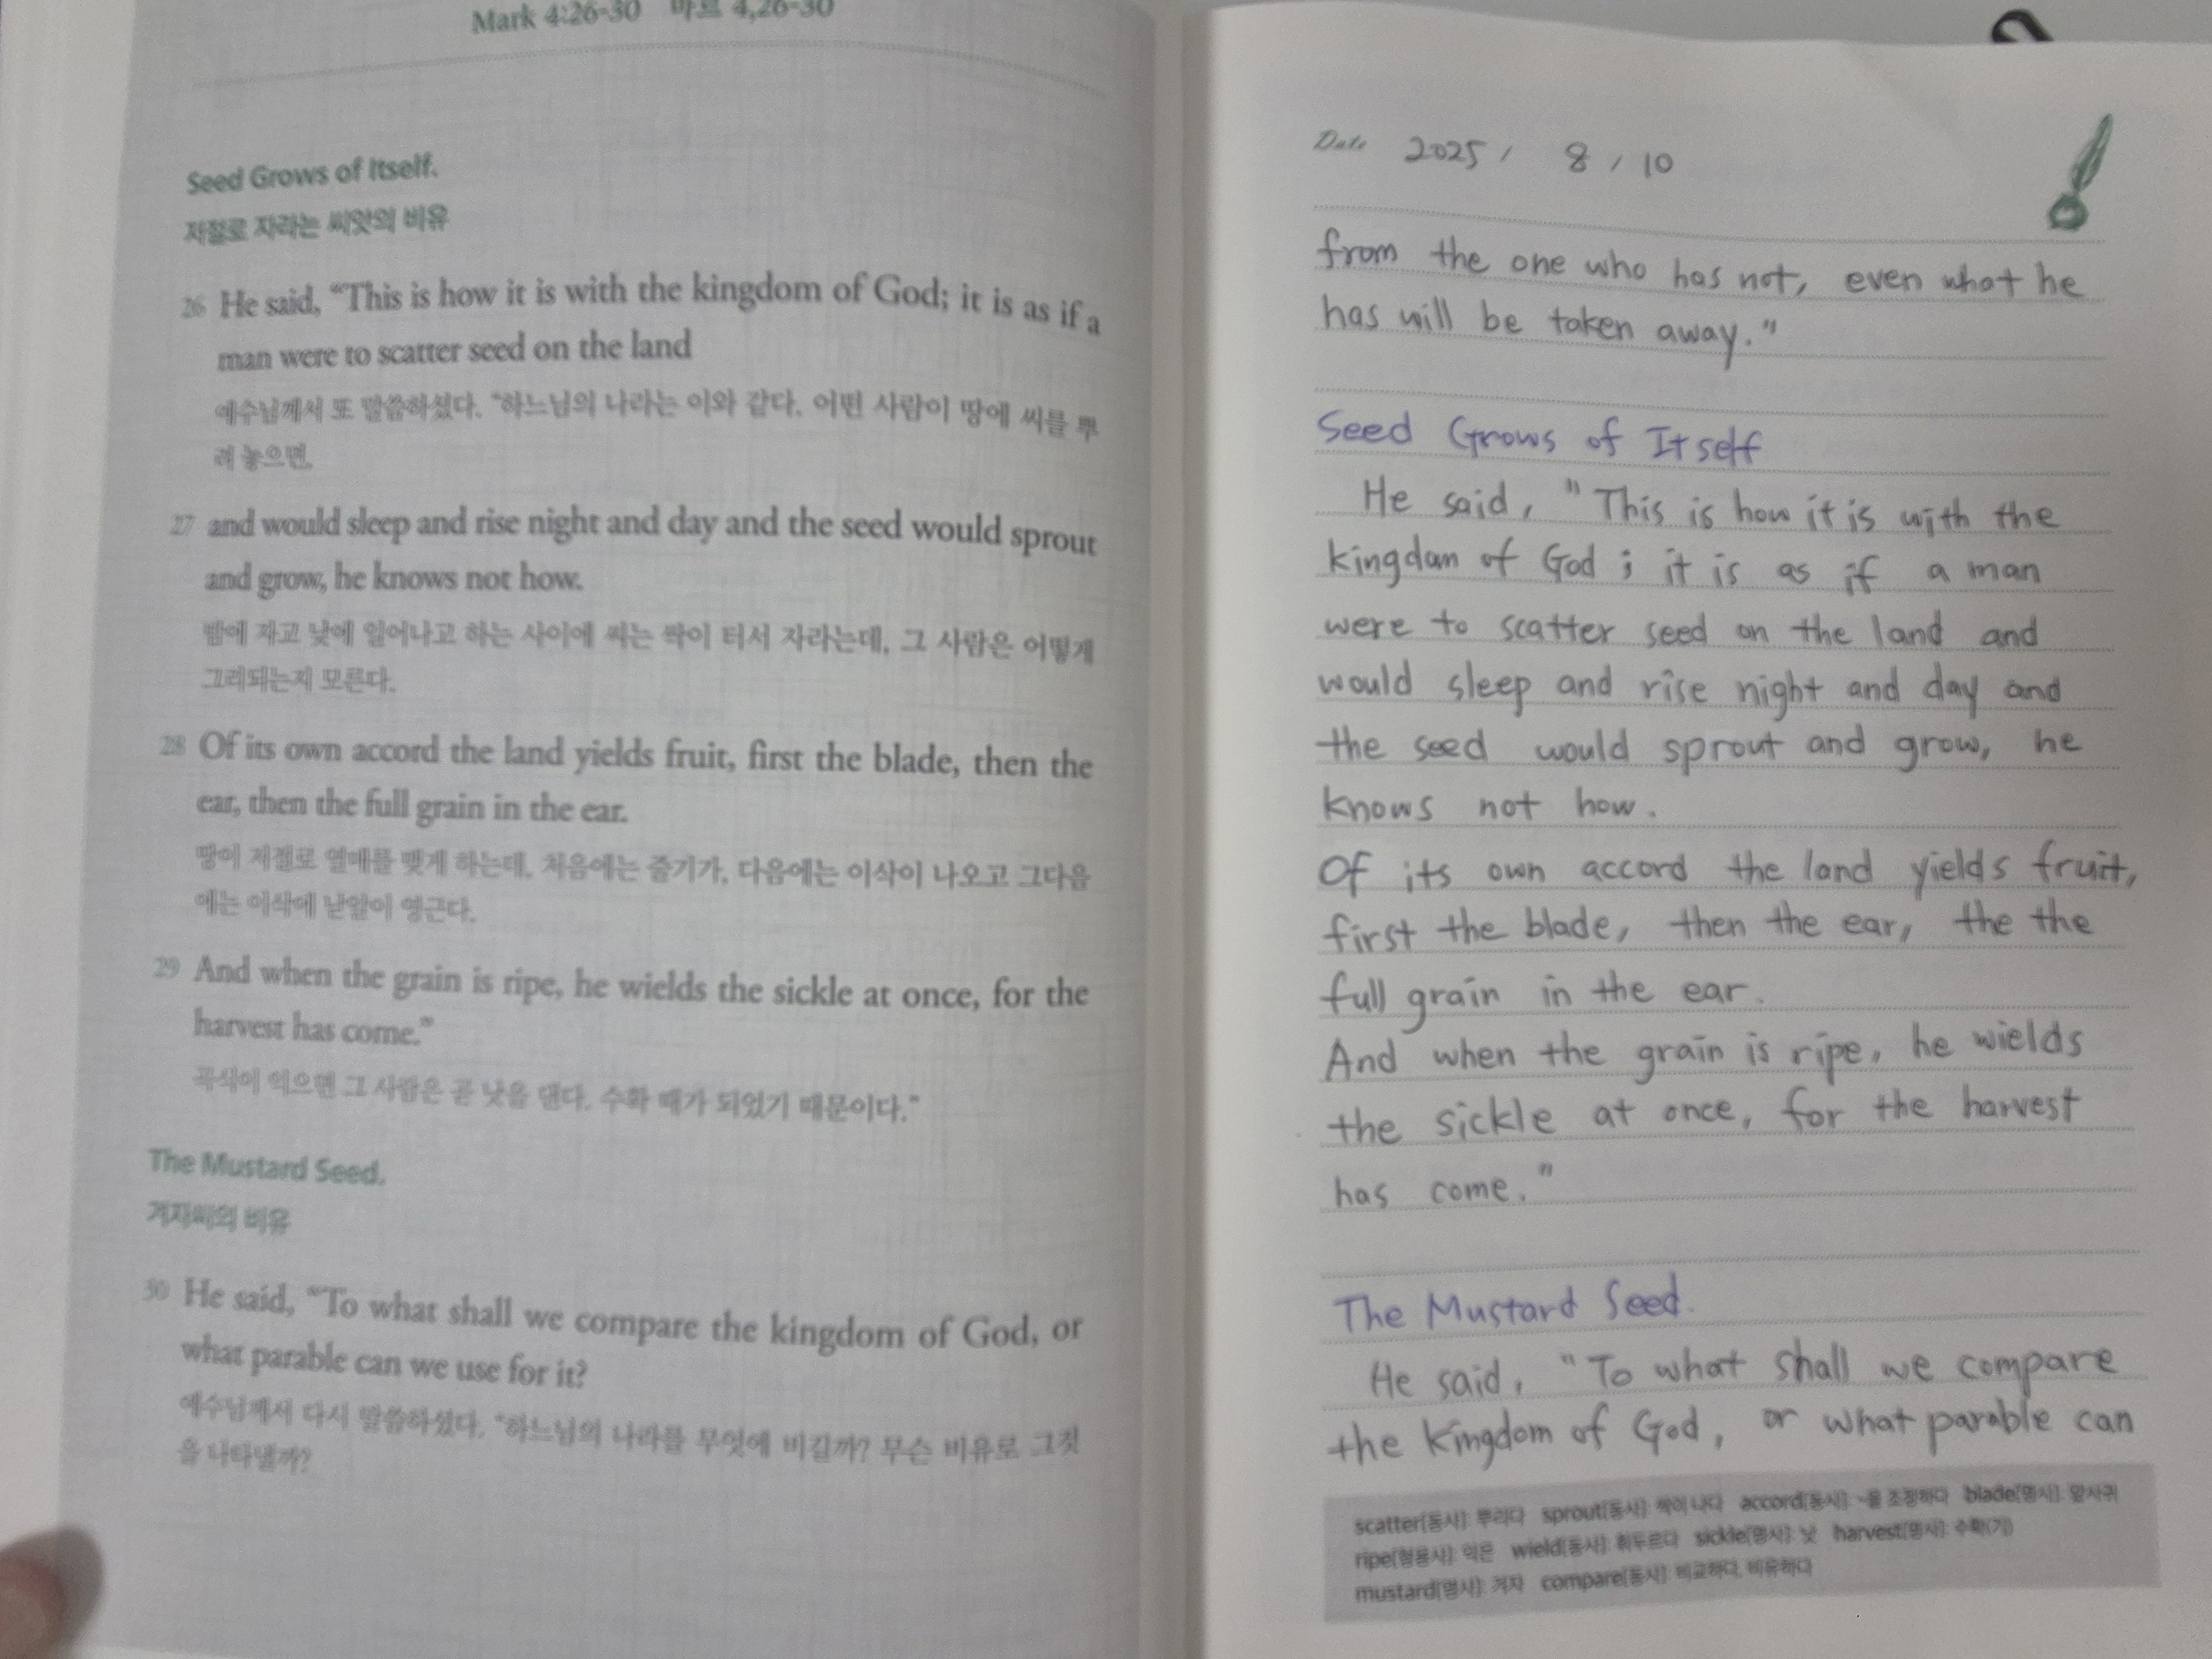 Mark 4:26-30 마르 4,26-30
Seed Grows of Itself.
저절로 자라는 씨앗의 비유
26 He said, “This is how it is with the kingdom of God; it is as if a
man were to scatter seed on the land
예수님께서 또 말씀하셨다. “하느님의 나라는 이와 같다. 어떤 사람이 땅에 씨를 뿌
려 놓으면,
27 and would sleep and rise night and day and the seed would sprout
and grow, he knows not how.
밤에 자고 낮에 일어나고 하는 사이에 씨는 싹이 터서 자라는데, 그 사람은 어떻게
그리되는지 모른다.
28 Of its own accord the land yields fruit, first the blade, then the
ear, then the full grain in the ear.
땅이 저절로 열매를 맺게 하는데, 처음에는 줄기가, 다음에는 이삭이 나오고 그다음
에는 이삭에 낟알이 영근다.
29 And when the grain is ripe, he wields the sickle at once, for the
harvest has come.”
곡식이 익으면 그 사람은 곧 낫을 댄다. 수확 때가 되었기 때문이다.”
The Mustard Seed.
겨자씨의 비유
30 He said, “To what shall we compare the kingdom of God, or
what parable can we use for it?
예수님께서 다시 말씀하셨다. “하느님의 나라를 무엇에 비길까? 무슨 비유로 그것
을 나타낼까?
Date 2025 / 8 / 10
from the one who has not, even what he
has will be taken away."
Seed Grows of Itself
He said, "This is how it is with the
kingdom of God ; it is as if a man
were to scatter seed on the land and
would sleep and rise night and day and
the seed would sprout and grow, he
knows not how.
Of its own accord the land yields fruit,
first the blade, then the ear, the the
full grain in the ear.
And when the grain is ripe, he wields
the sickle at once, for the harvest
has come."
The Mustard Seed.
He said, "To what shall we compare
the kingdom of God, or what parable can
scatter[동사]: 뿌리다 sprout[동사]: 싹이 나다 accord[동사]: ~을 조정하다 blade[명사]: 잎사귀
ripe[형용사]: 익은 wield[동사]: 휘두르다 sickle[명사]: 낫 harvest[명사]: 수확(기)
mustard[명사]: 겨자 compare[동사]: 비교하다, 비유하다